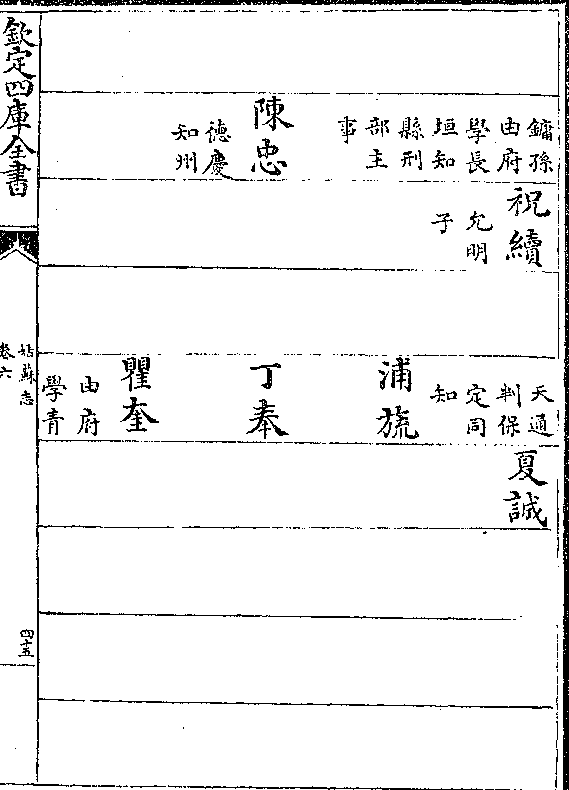 鏞孫
由府
學長
垣知
縣刑
部主
事
陳忠
德慶
知州
祝續
允明
子
天通
判保
定同
知
浦旒
丁奉
瞿奎
由府
學青
夏誠
欽定四庫全書
姑蘇志
卷六
四十五